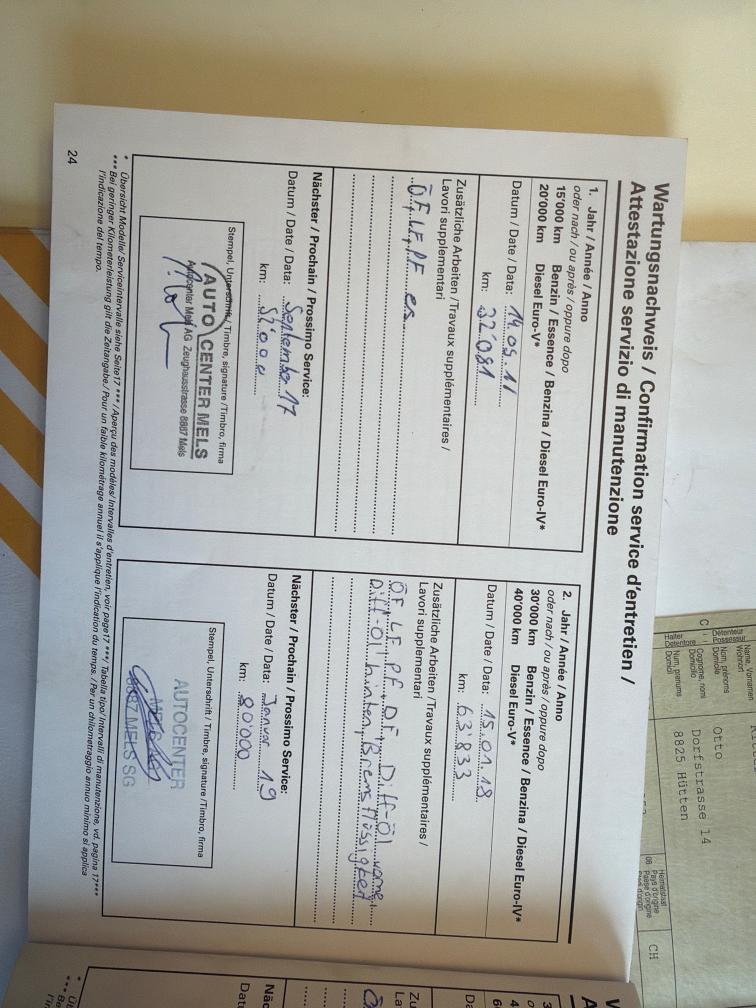 Wartungsnachweis / Confirmation service d'entretien /
Attestazione servizio di manutenzione
1. Jahr / Année / Anno
oder nach / ou après / oppure dopo
15'000 km Benzin / Essence / Benzina / Diesel Euro-IV*
20'000 km Diesel Euro-V*
Datum / Date / Data:
km: 32'081
Zusätzliche Arbeiten / Travaux supplémentaires /
Lavori supplementari
ÖF, LF, PF
Nächster / Prochain / Prossimo Service:
Datum / Date / Data: September 17
km:
Stempel, Unterschrift / Timbre, signature / Timbro, firma
AUTO CENTER MELS
Autocenter Mels AG Zeughausstrasse 8887 Mels
2. Jahr / Année / Anno
oder nach / ou après / oppure dopo
30'000 km Benzin / Essence / Benzina / Diesel Euro-IV*
40'000 km Diesel Euro-V*
Datum / Date / Data: 15.01.18
km: 63'833
Zusätzliche Arbeiten / Travaux supplémentaires /
Lavori supplementari
ÖF, LF, PF, DF, Diff-Öl vorne,
Diff-Öl hinten, Bremsflüssigkeit
Nächster / Prochain / Prossimo Service:
Datum / Date / Data: Januar 19
km: 80'000
Stempel, Unterschrift / Timbre, signature / Timbro, firma
AUTOCENTER
8887 MELS SG
* Übersicht Modelle/ Serviceintervalle siehe Seite17 *** / Aperçu des modèles/ Intervalles d'entretien, voir page17 ***/ Tabella tipo/ Intervalli di manutenzione, vd. pagina 17***
*** Bei geringer Kilometerleistung gilt die Zeitangabe./ Pour un faible kilométrage annuel il s'applique l'indication du temps. / Per un chilometraggio annuo minimo si applica
l'indicazione del tempo.
24
Name, Vornamen
Wohnort
Nom, prénoms
Domicile
Cognome, nomi
Domicilio
Num, prenums
Domicil
C
Détenteur
Possessur
Halter
Detentore
Otto
Dorfstrasse 14
8825 Hütten
Heimatstaat
Pays d'origine
Paese d'origine
06
CH